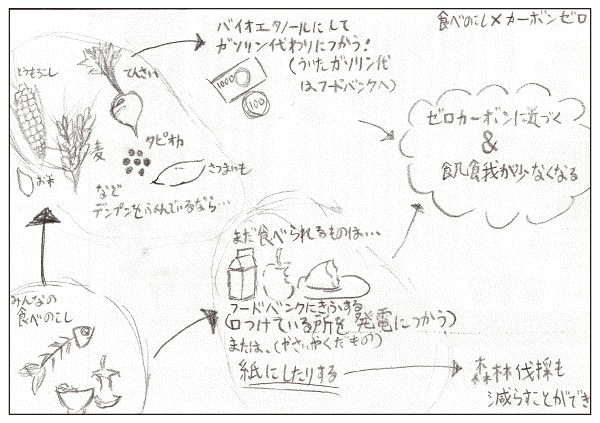 食べのこし×カーボンゼロ
バイオエタノールにして
ガソリン代わりにつかう!
(ういたガソリン代
はフードバンクへ)
1000
100
とうもろこし
てんさい
麦
タピオカ
さつまいも
お米
など
デンプンをふくんでいるなら…
ゼロカーボンに近づく
&
飢餓が少なくなる
まだ食べられるものは…
フードバンクにきふする
(口つけている所を発電につかう)
または、(やさいやくだもの)
紙にしたりする
みんなの
食べのこし
森林伐採も
減らすことができ